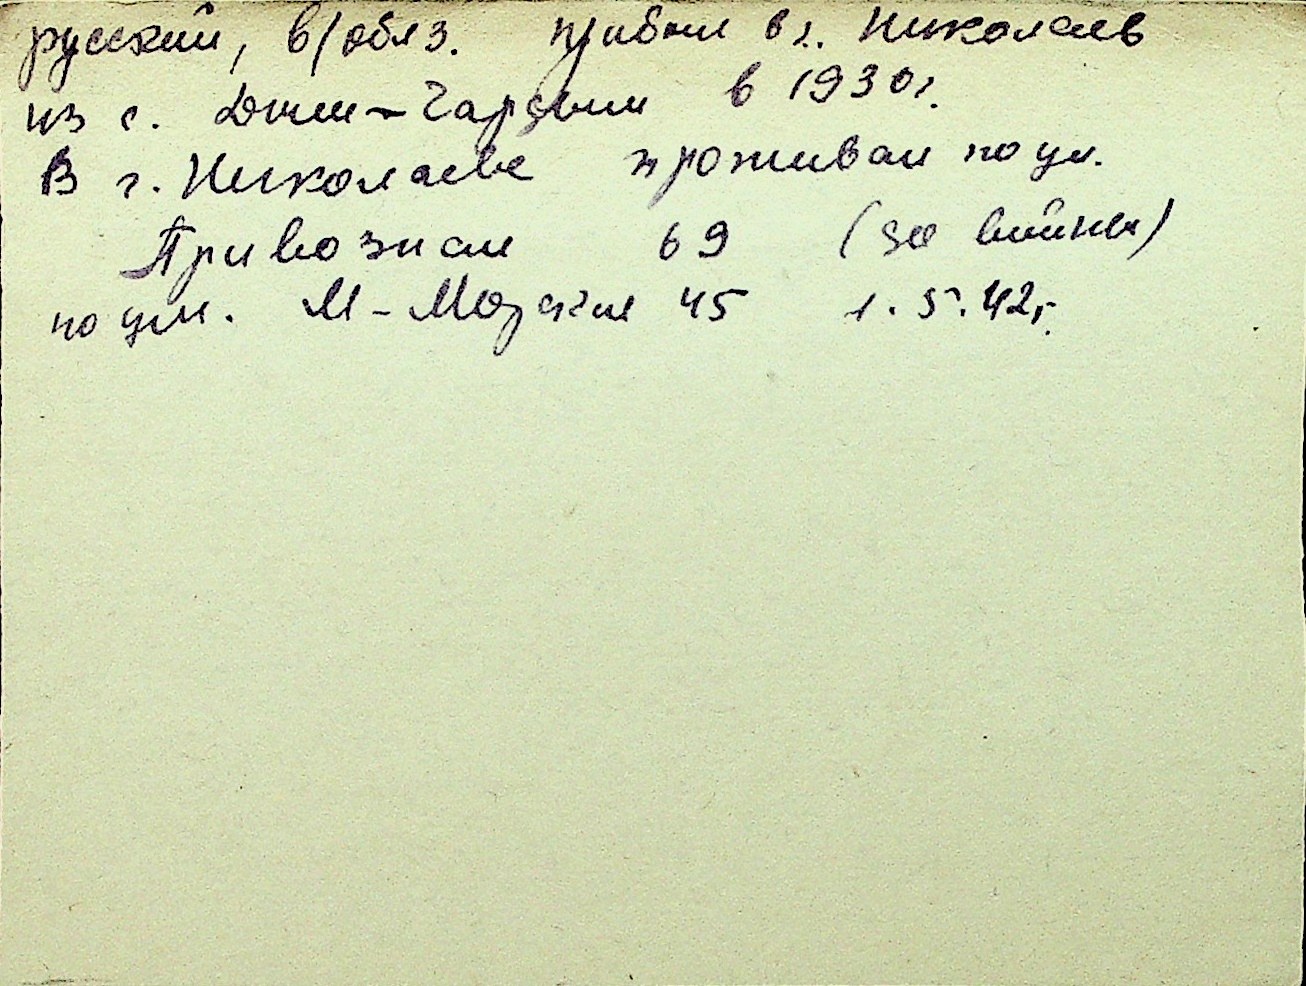 русский, в/обяз. прибыл в г. Николаев
из с. в 1930г.
В г. Николаеве проживал по ул.
Привозная 69 (до войны)
по ул. М-Морская 45 1.5.42г.